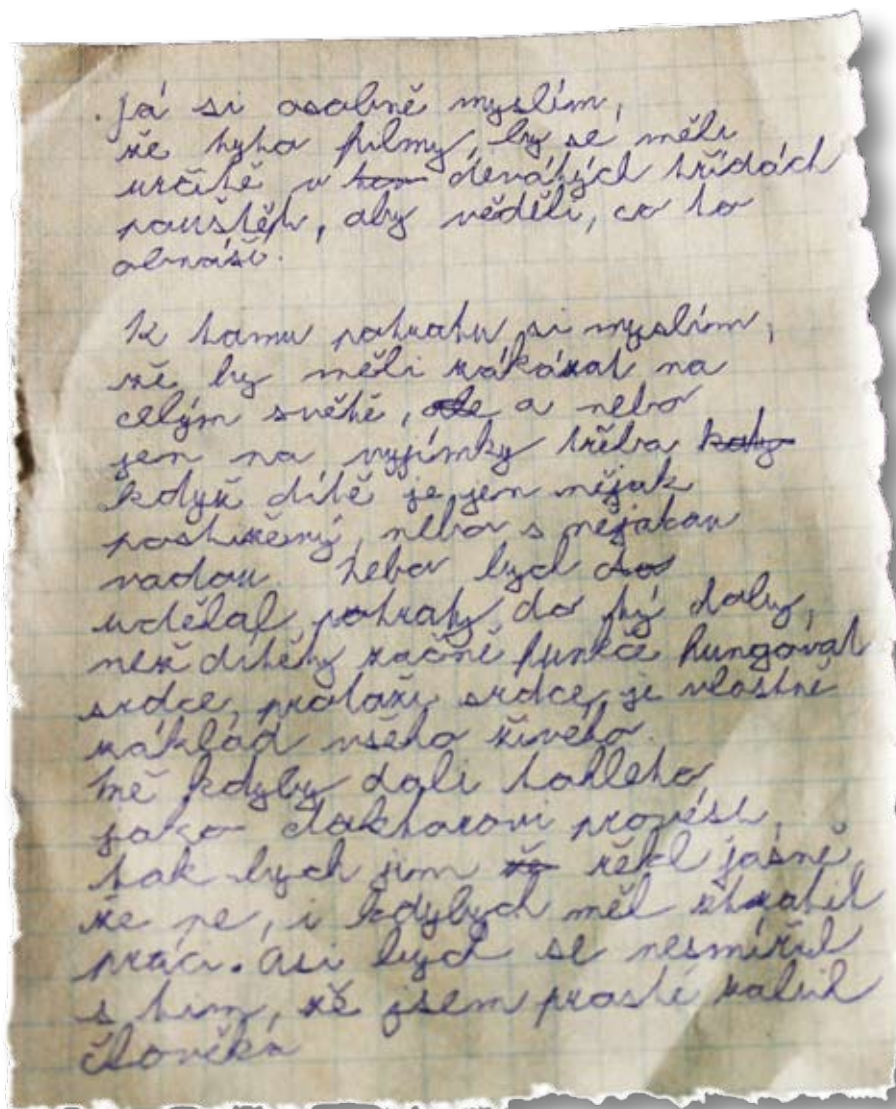 já si osobně myslím,
že tyto filmy, by se měli
určitě v devátých třídách
pouštět, aby věděli, co to
obnáší.
K tomu potratu si myslím,
žě by měli zákázat na
celým světě, a nebo
jen na vyjímky třeba
když dítě je jen nějak
postižený, nebo s nějakou
vadou. Nebo bych
udělal potraty do tý doby,
než dítěty začně funkce fungovat
srdce, protaže srdce, je vlostně
základ všeho živého.
mě kdyby dali tohleto
jako doktorovi provést,
tak bych jim řěkl jasně,
že ne, i kdybych měl ztratit
práci. Asi bych se nesmířil
s tim, žě jsem prostě zabil
člověka